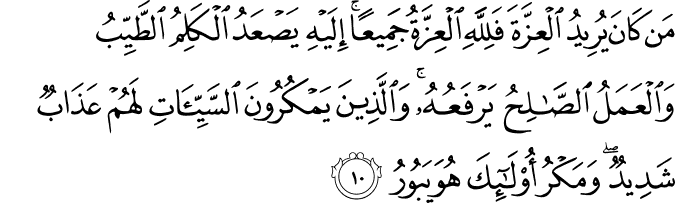 مَن كَانَ يُرِيدُ ٱلْعِزَّةَ فَلِلَّهِ ٱلْعِزَّةُ جَمِيعًا ۚ إِلَيْهِ يَصْعَدُ ٱلْكَلِمُ ٱلطَّيِّبُ
وَٱلْعَمَلُ ٱلصَّـٰلِحُ يَرْفَعُهُۥ ۚ وَٱلَّذِينَ يَمْكُرُونَ ٱلسَّيِّـَٔاتِ لَهُمْ عَذَابٌ
شَدِيدٌ ۖ وَمَكْرُ أُو۟لَـٰٓئِكَ هُوَ يَبُورُ ۝١٠